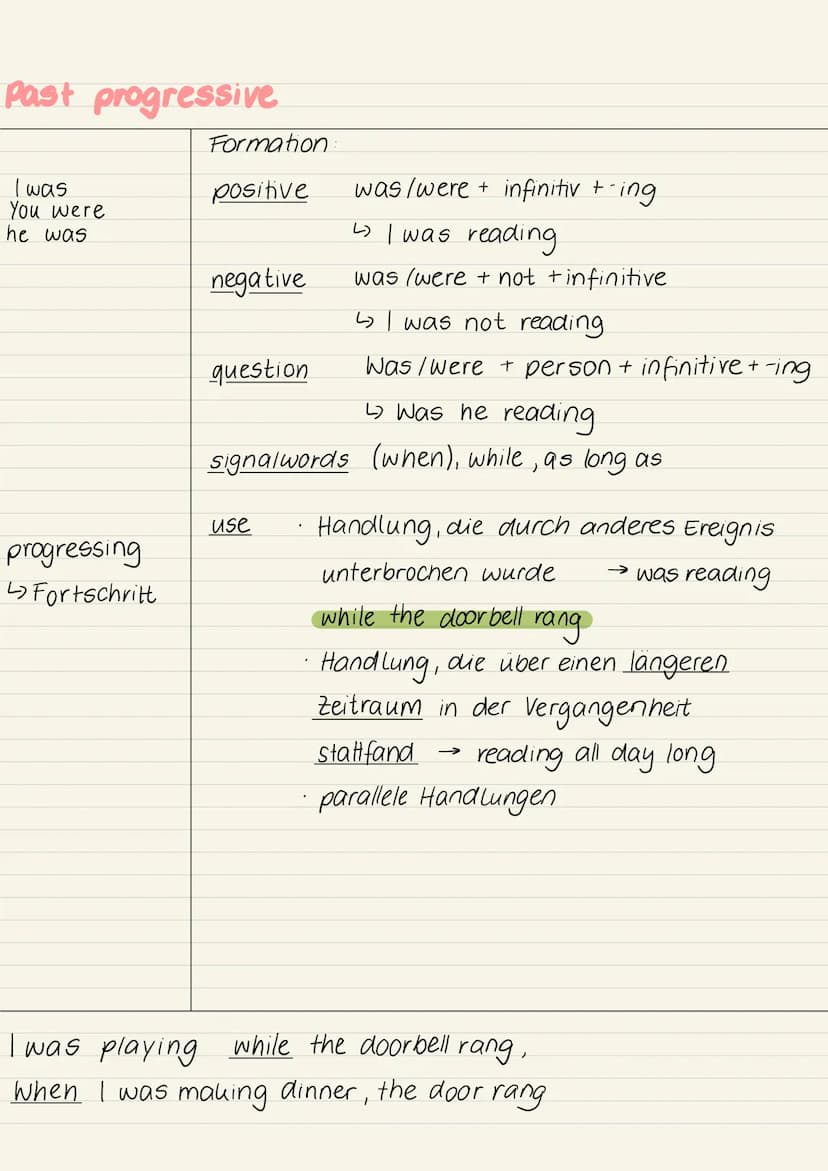 Past progressive
Formation:
I was
You were
he was
positive was/were + infinitiv + -ing
↳ I was reading
negative was/were + not + infinitive
↳ I was not reading
question Was/were + person + infinitive + -ing
↳ Was he reading
signalwords (when), while, as long as
progressing
↳ Fortschritt
use · Handlung, die durch anderes Ereignis
unterbrochen wurde → was reading
while the doorbell rang
· Handlung, die über einen längeren
Zeitraum in der Vergangenheit
stattfand → reading all day long
· parallele Handlungen
I was playing while the doorbell rang,
When I was making dinner, the door rang